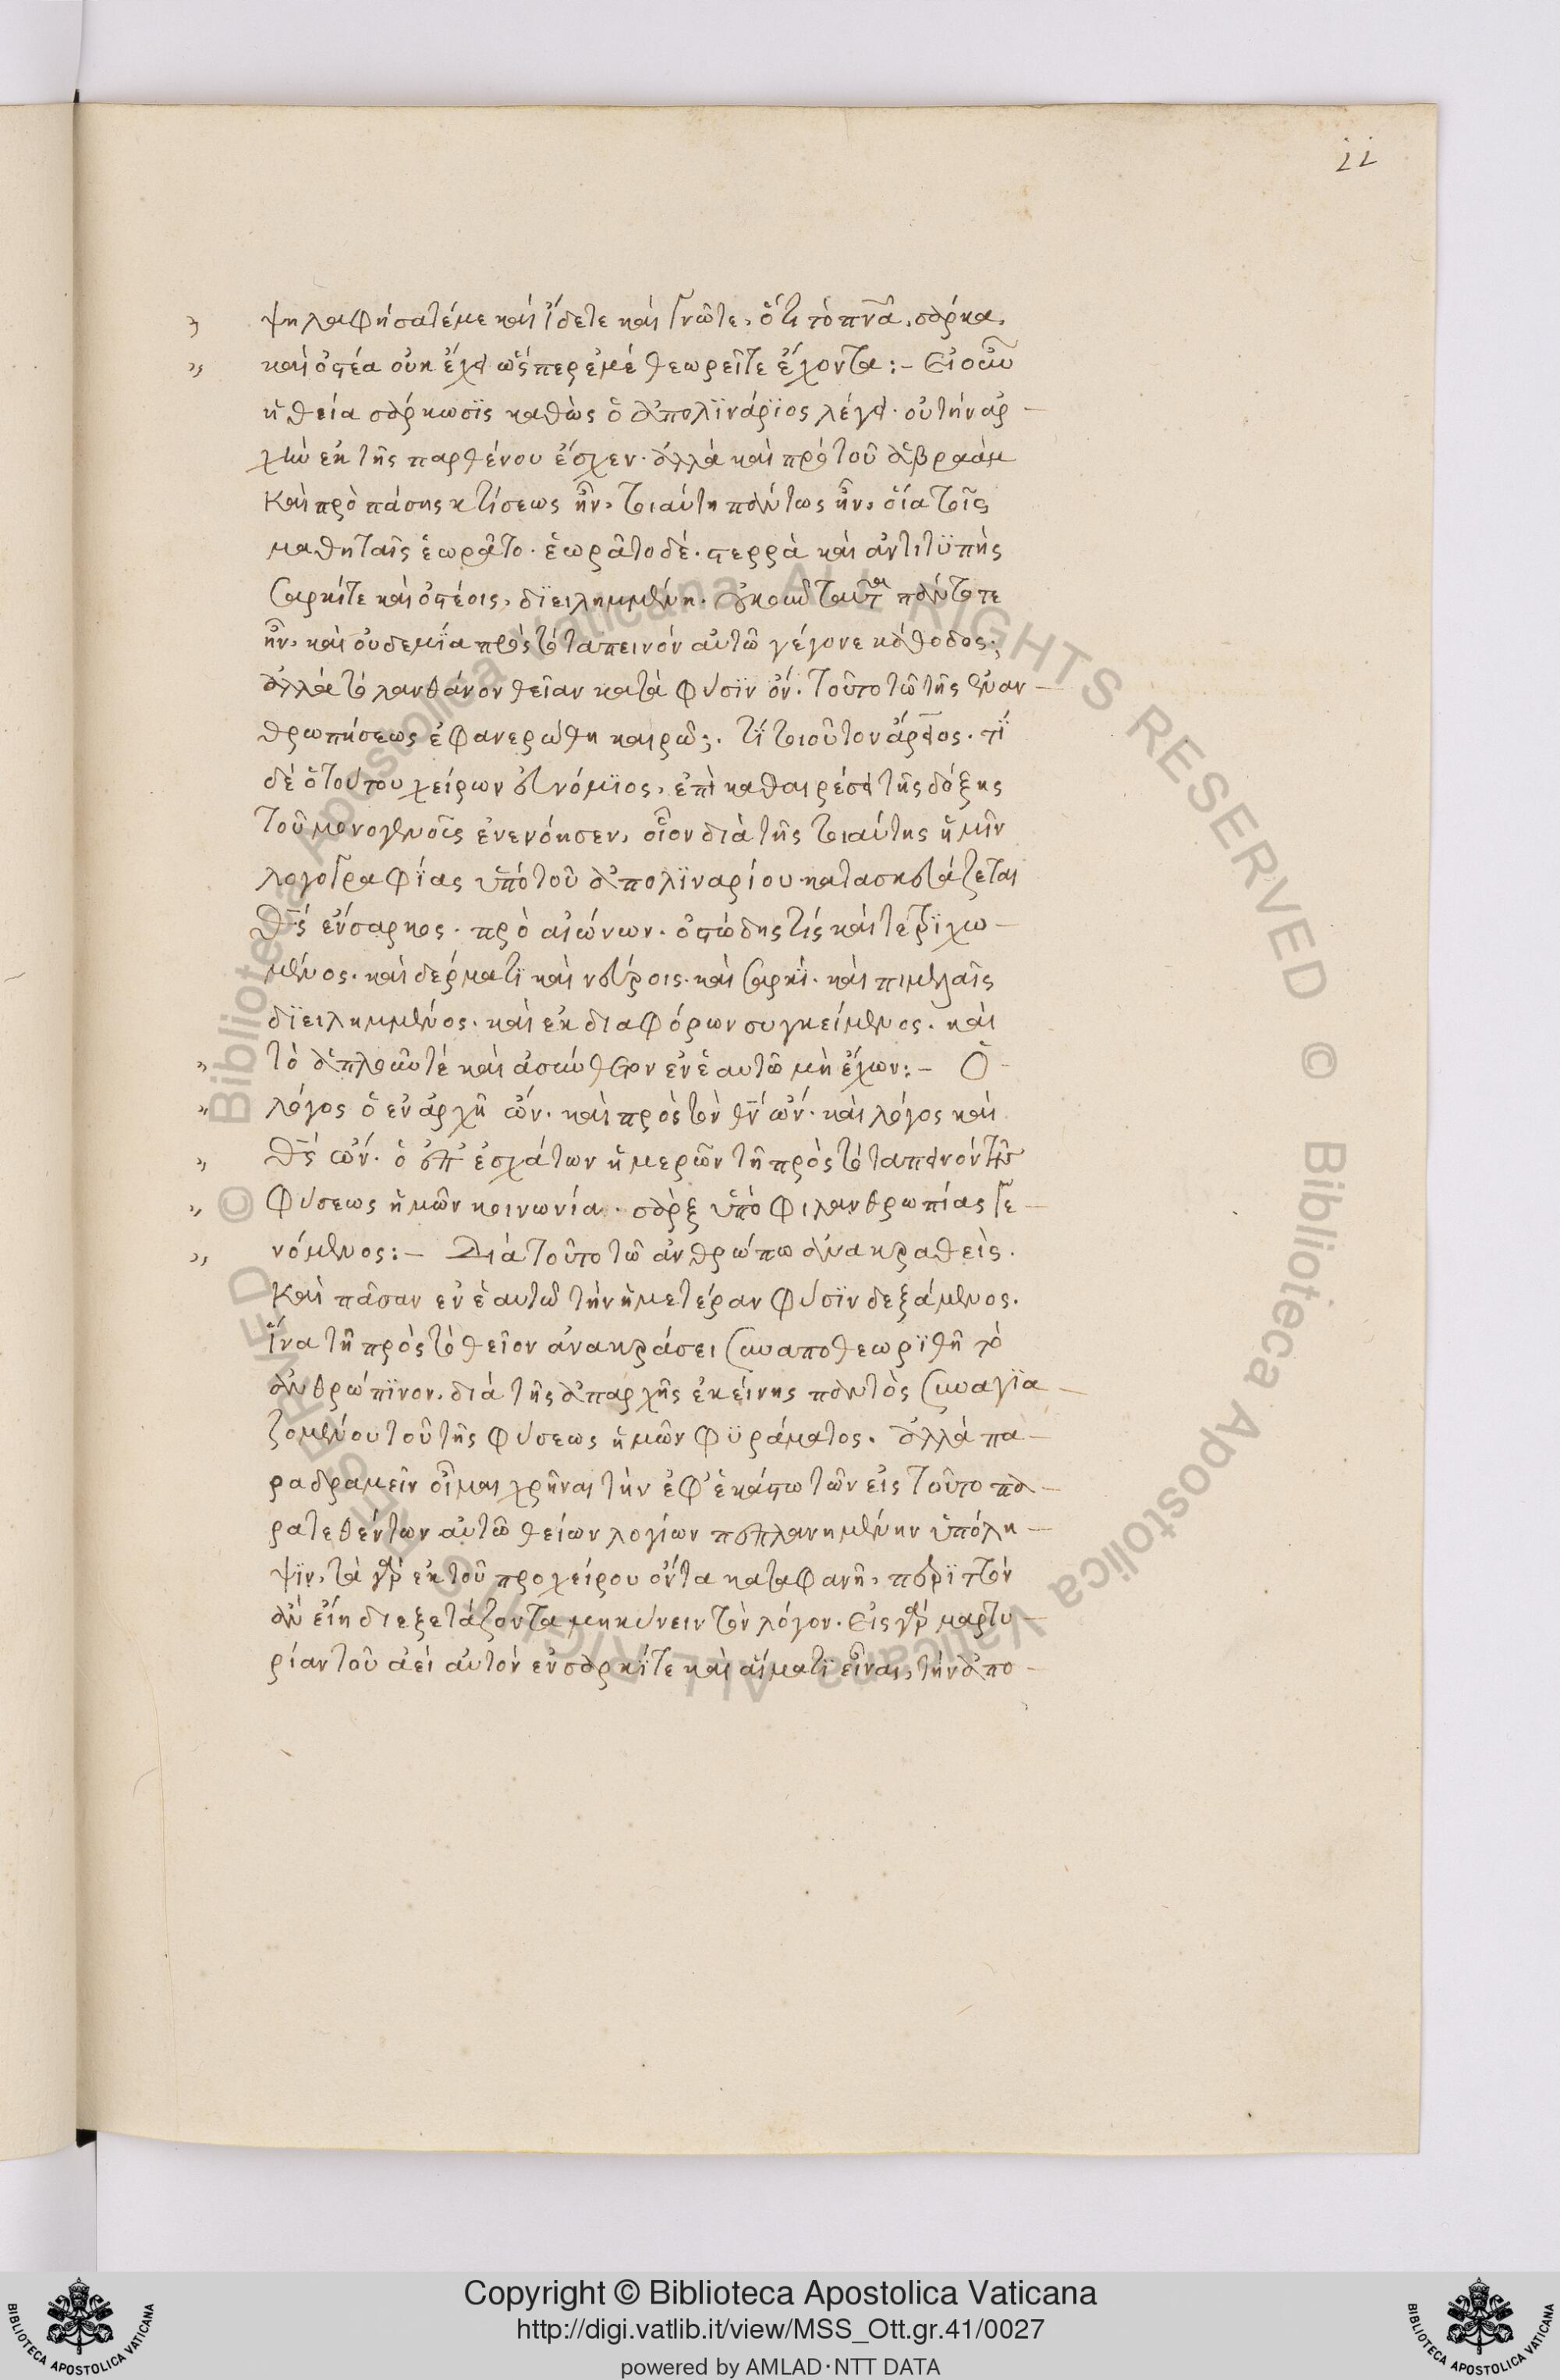 11
ψηλαφήσατέ με καὶ ἴδετε καὶ γνῶτε, ὅτι τὸ πν̅α̅, σάρκα,
καὶ ὀστέα οὐκ ἔχει ὥσπερ ἐμέ θεωρεῖτε ἔχοντα:- Εἰ οὖν
ἡ θεία σάρκωσϊς καθὼς ὁ ἀπολϊνάρϊος λέγει· οὐ τὴν ἀρ-
χὴν ἐκ τῆς παρθένου ἔσχεν· ἀλλὰ καὶ πρὸ τοῦ ἀβραὰμ
καὶ πρὸ πάσης κτίσεως ἦν, τοιαύτη πάντως ἦν, οἵα τοῖς
μαθηταῖς ἑωρᾶτο· ἑωρᾶτο δέ· στερρὰ καὶ ἀντιτϋπὴς
σαρκί τε καὶ ὀστέοις, δϊειλημμένη. οὐκοῦν ταῦτα πάντοτε
ἦν, καὶ οὐδεμΐα πρὸς τὸ ταπεινόν αὐτῶ γέγονε κάθοδος·
ἀλλὰ τὸ λανθάνον θεῖαν κατὰ φύσϊν ὄν. τοῦτο τῶ τῆς ἐναν-
θρωπήσεως ἐφανερώθη καιρῶ;. τί τοιοῦτον ἄρειος. τΐ
δέ ὁ τούτου χείρων εὐνόμϊος, ἐπὶ καθαιρέσει τῆς δόξης
τοῦ μονογενοῦς ἐνενόησεν, οἷον διὰ τῆς τοιαύτης ἡμῖν
λογογραφΐας ὑπὸ τοῦ ἀπολϊναρίου κατασκευάζεται
θ̅ς̅ ἔνσαρκος· πρὸ αἰώνων. ὀστώδης τίς καὶ τετρϊχω-
μένος. καὶ δέρματϊ καὶ νεύροις. καὶ σαρκΐ. καὶ πιμελαῖς
δϊειλημμένος. καὶ ἐκ διαφόρων συγκείμενος. καὶ
τὸ ἁπλοῦν τέ καὶ ἀσύνθετον ἐν ἑαυτῶ μὴ ἔχων:- Ὁ
λόγος ὁ ἐν ἀρχῆ ὤν. καὶ πρὸς τὸν θ̅ν̅ ὤν. καὶ λόγος καὶ
θ̅ς̅ ὤν. ὁ ἐπ' ἐσχάτων ἡμερῶν τῆ πρὸς τὸ ταπεινόν τῆς
φύσεως ἡμῶν κοινωνία. σὰρξ ὑπὸ φιλανθρωπίας γε-
νόμενος:- Διὰ τοῦτο τῶ ἀνθρώπω ἀνακραθεὶς.
καὶ πᾶσαν ἐν ἑαυτῶ τὴν ἡμετέραν φύσϊν δεξάμενος.
ἵνα τῆ πρὸς τὸ θεῖον ἀνακράσει συναποθεωρϊθῆ τὸ
ἀνθρώπϊνον. διὰ τῆς ἀπαρχῆς ἐκείνης παντὸς συναγϊα-
ζομένου τοῦ τῆς φύσεως ἡμῶν φϋράματος. ἀλλὰ πα-
ραδραμεῖν οἶμαι χρῆναι τὴν ἐφ' ἑκάστω τῶν εἰς τοῦτο πα-
ρατεθέντων αὐτῶ θείων λογίων πεπλανημένην ὑπόλη-
ψϊν, τὰ γὰρ ἐκ τοῦ προχείρου ὄντα καταφανῆ, περϊττὸν
ἂν εἴη διεξετάζοντα μηκύνειν τὸν λόγον. εἰς γὰρ μαρτυ-
ρίαν τοῦ ἀεὶ αὐτὸν ἐν σαρκΐ τε καὶ αἵματϊ εἶναι, τὴν ἀπο-
© Biblioteca Apostolica Vaticana ALL RIGHTS RESERVED © Biblioteca Apostolica Vaticana ALL RIGHTS RESERVED
Copyright © Biblioteca Apostolica Vaticana
http://digi.vatlib.it/view/MSS_Ott.gr.41/0027
powered by AMLAD·NTT DATA
BIBLIOTECA APOSTOLICA VATICANA
BIBLIOTECA APOSTOLICA VATICANA